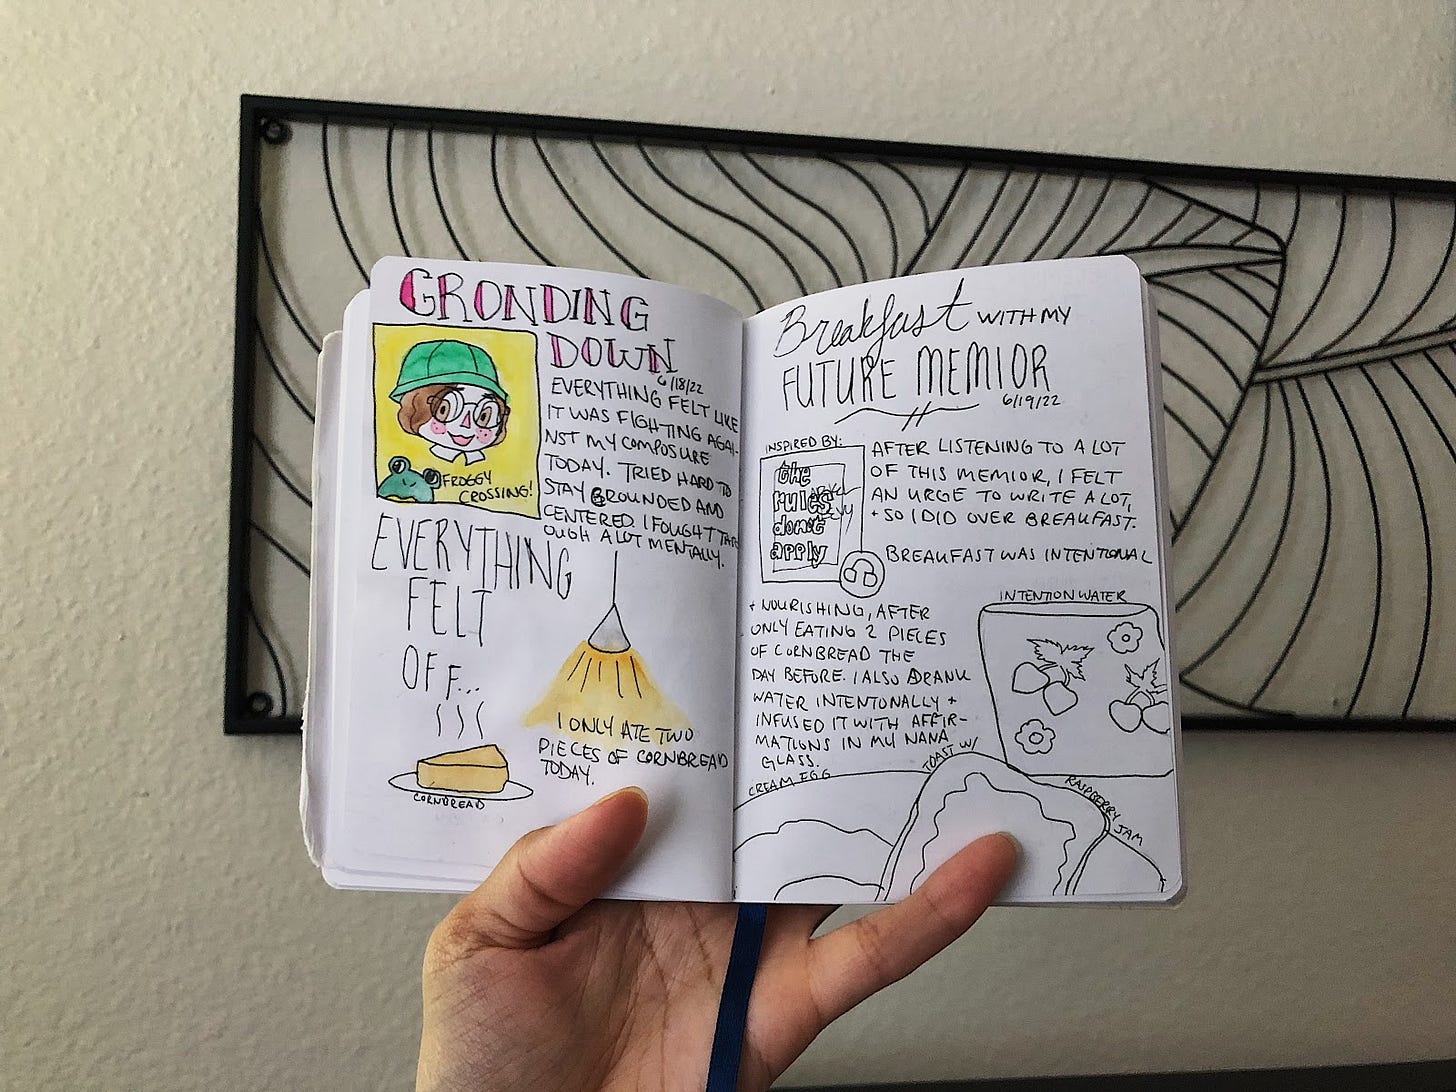 GRONDING
DOWN
6/18/22
EVERYTHING FELT LIKE
IT WAS FIGHTING AGAI-
NST MY COMPOSURE
TODAY. TRIED HARD TO
STAY GROUNDED AND
CENTERED. I FOUGHT THR
OUGH A LOT MENTALLY.
FROGGY
CROSSING!
EVERYTHING
FELT
OFF...
CORNBREAD
I ONLY ATE TWO
PIECES OF CORNBREAD
TODAY.
Breakfast WITH MY
FUTURE MEMIOR
6/19/22
INSPIRED BY:
the
rules
don't
apply
AFTER LISTENING TO A LOT
OF THIS MEMIOR, I FELT
AN URGE TO WRITE A LOT,
+ SO I DID OVER BREAKFAST.
BREAKFAST WAS INTENTIONAL
+ NOURISHING, AFTER
ONLY EATING 2 PIECES
OF CORNBREAD THE
DAY BEFORE. I ALSO DRANK
WATER INTENTONALLY +
INFUSED IT WITH AFFIR-
MATIONS IN MY NANA
GLASS.
INTENTION WATER
CREAM EGG
TOAST W/
RASPBERRY JAM